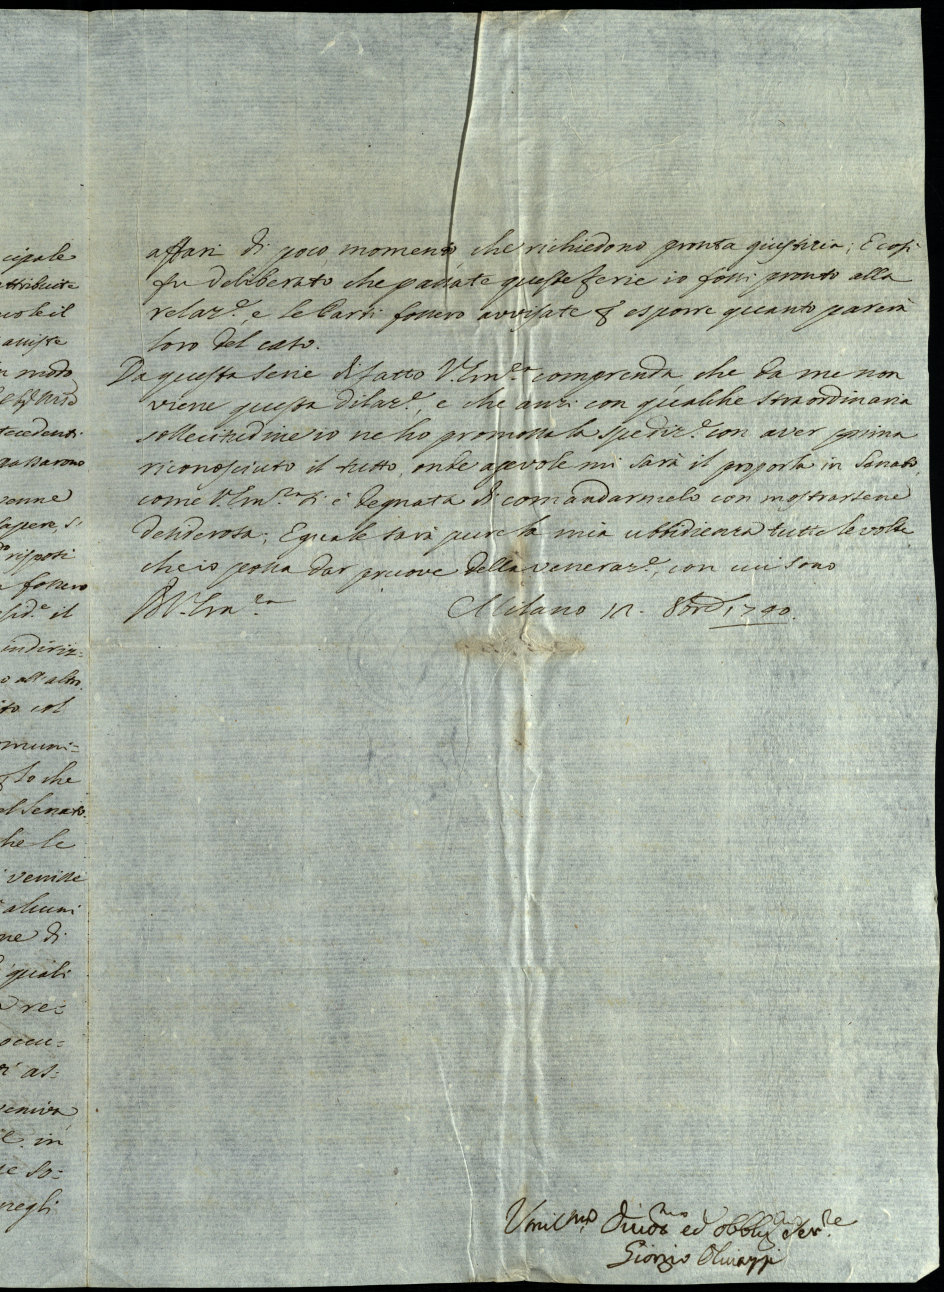 cipale
attribuite
avviste
in modo
tecedenti
passarono
venne
sapere, si
risposi
fossero
il
indiriz=
o all'altri
ito col
omuni=
so che
al Senato.
he le
venisse
alcuni
ne di
quali
re=
occu=
as=
veniva
in
e so=
negli
affari di poco momento che richiedono pronta giustizia; E così
fu deliberato che passate queste ferie io fossi pronto alla
relaz.e, e le Parti fossero avvisate p esporre quanto parerà
loro del caso.
Da questa serie di fatto V. Em.za comprenda, che da me non
viene questa dilaz.e, e che anzi con qualche straordinaria
sollecitudine io ne ho promossa la spediz.e con aver prima
riconosciuto il tutto, onde agevole mi sarà il proporla in Senato,
come V. Em.za si è degnata di comandarmelo con mostrarsene
desiderosa; Eguale sarà pure la mia ubbidienza tutte le volte
che io possa dar pruove della veneraz.e, con cui sono
Di V. Em.za Milano 8bre 1740.
Umil.mo Divot.mo ed obblig.mo Ser.re
Giorgio Olivazzi